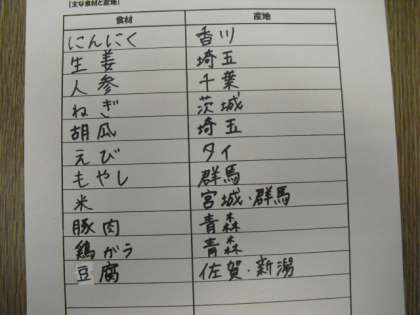 [主な食材と産地]
食材 産地
にんにく 香川
生姜 埼玉
人参 千葉
ねぎ 茨城
胡瓜 埼玉
えび タイ
もやし 群馬
米 宮城・群馬
豚肉 青森
鶏がら 青森
豆腐 佐賀・新潟